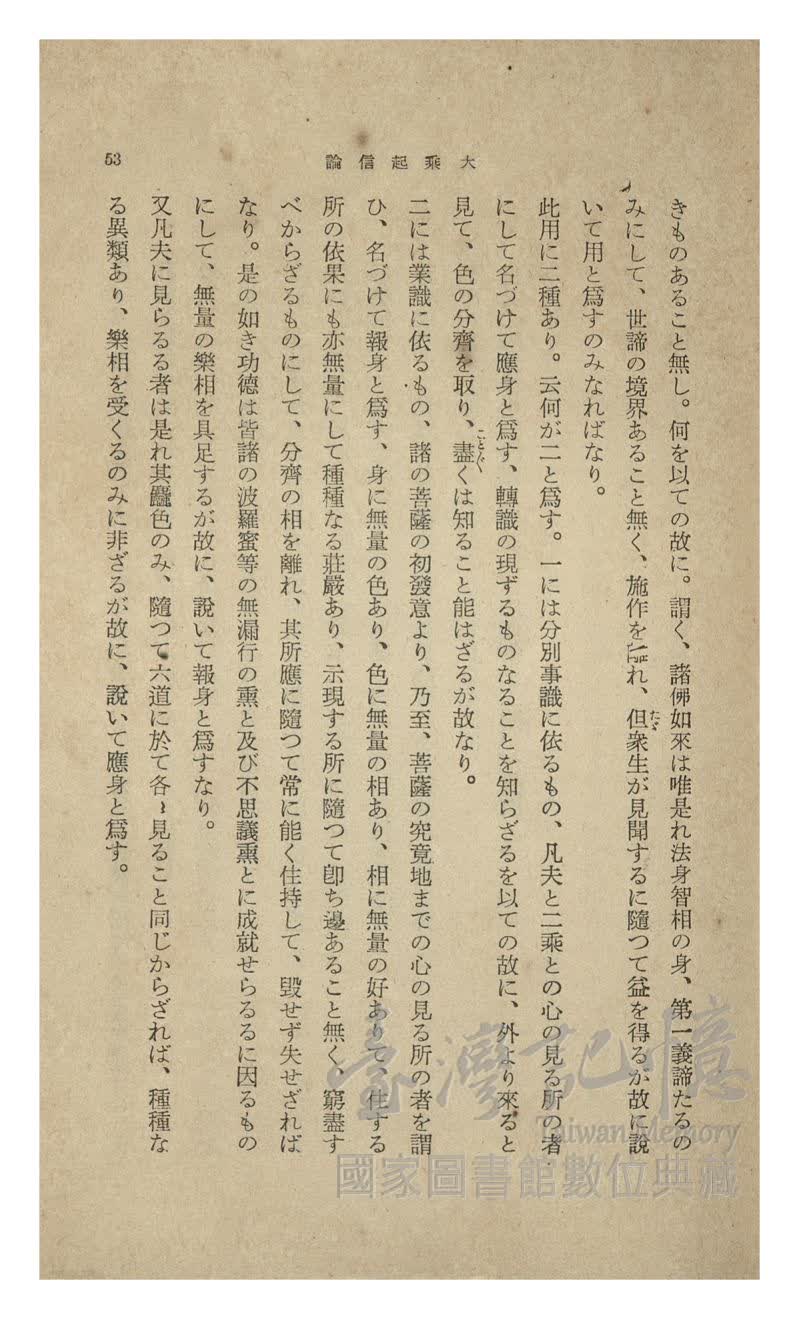 大乘起信論
53
きものあること無し。何を以ての故に。謂く、諸佛如來は唯是れ法身智相の身、第一義諦たるの
みにして、世諦の境界あること無く、施作を離れ、但衆生が見聞するに隨つて益を得るが故に說
たゞ
いて用と爲すのみなればなり。
此用に二種あり。云何が二と爲す。一には分別事識に依るもの、凡夫と二乘との心の見る所の者
にして名づけて應身と爲す、轉識の現ずるものなることを知らざるを以ての故に、外より來ると
見て、色の分齊を取り、盡くは知ること能はざるが故なり。
ことぐ
二には業識に依るもの、諸の菩薩の初發意より、乃至、菩薩の究竟地までの心の見る所の者を謂
ひ、名づけて報身と爲す、身に無量の色あり、色に無量の相あり、相に無量の好ありて、住する
所の依果にも亦無量にして種種なる莊嚴あり、示現する所に隨つて卽ち邊あること無く、窮盡す
べからざるものにして、分齊の相を離れ、其所應に隨つて常に能く住持して、毀せず失せざれば
なり。是の如き功德は皆諸の波羅蜜等の無漏行の熏と及び不思議熏とに成就せらるるに因るもの
にして、無量の樂相を具足するが故に、說いて報身と爲すなり。
又凡夫に見らるる者は是れ其麤色のみ、隨つて六道に於て各〻見ること同じからざれば、種種な
る異類あり、樂相を受くるのみに非ざるが故に、說いて應身と爲す。
臺灣記憶
Taiwan Memory
國家圖書館數位典藏